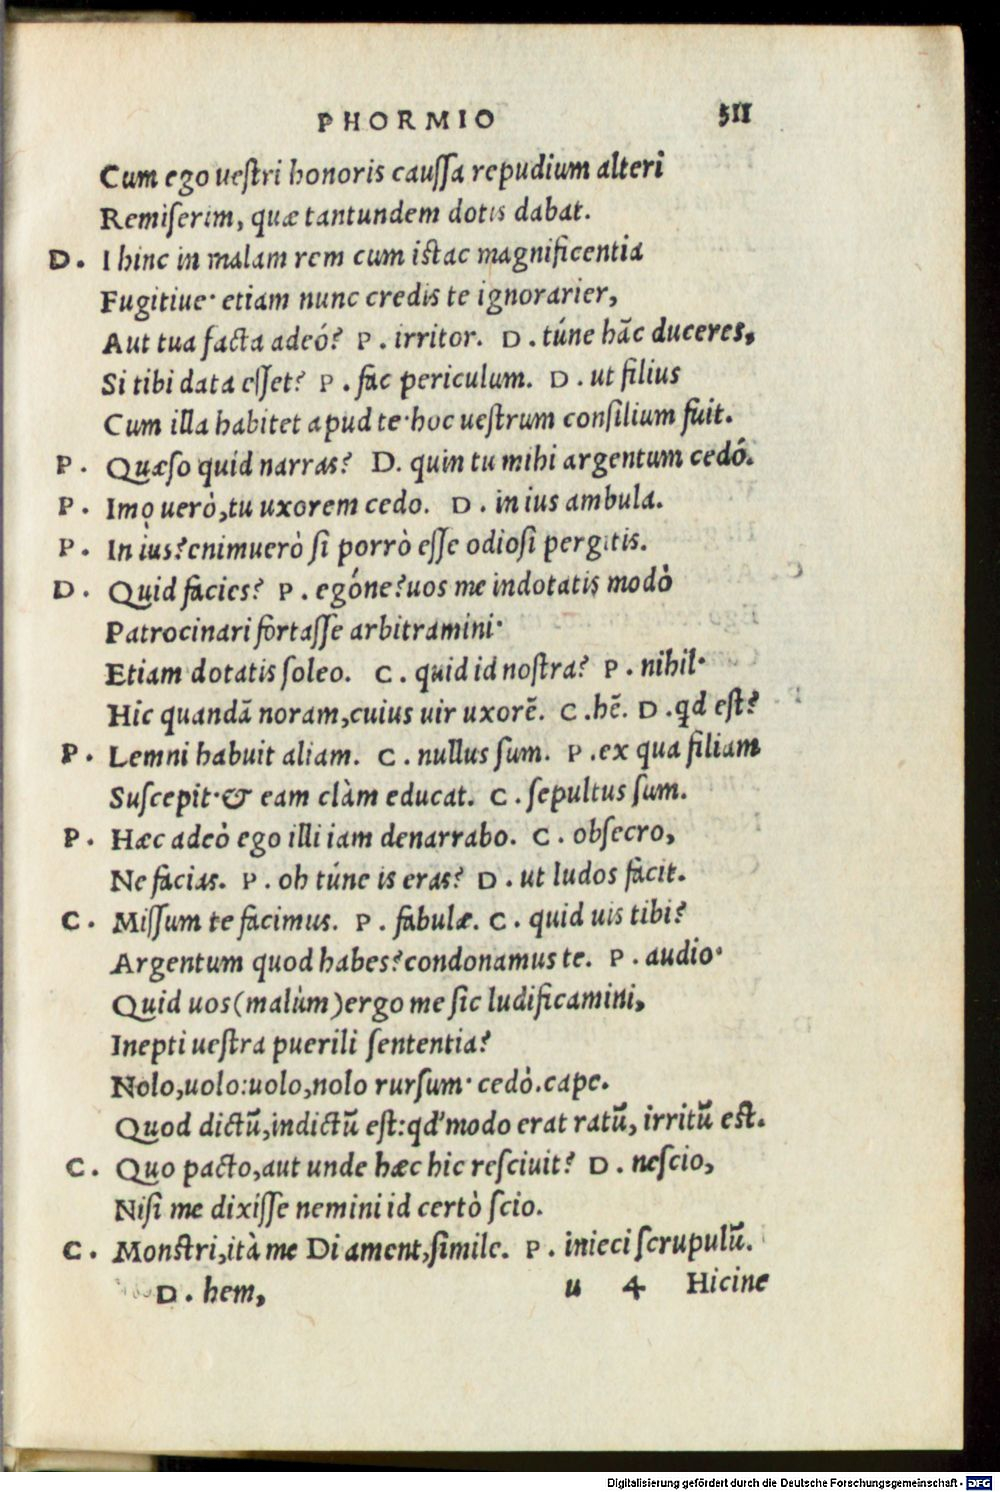 PHORMIO 311
Cum ego uestri honoris caussa repudium alteri
Remiserim, quæ tantundem dotis dabat.
D. I hinc in malam rem cum istac magnificentia
Fugitiue· etiam nunc credis te ignorarier,
Aut tua facta adeó? P. irritor. D. túne hāc duceres,
Si tibi data esset? P. fac periculum. D. ut filius
Cum illa habitet apud te·hoc uestrum consilium fuit.
P. Quæso quid narras? D. quin tu mihi argentum cedó.
P. Imo uerò,tu uxorem cedo. D. in ius ambula.
P. In ius?enimuerò si porrò esse odiosi pergitis.
D. Quid facies? P. egóne?uos me indotatis modò
Patrocinari fortasse arbitramini·
Etiam dotatis soleo. C. quid id nostra? P. nihil·
Hic quandā noram,cuius uir uxorē. C. hē. D. qd est?
P. Lemni habuit aliam. C. nullus sum. P. ex qua filiam
Suscepit·& eam clàm educat. C. sepultus sum.
P. Hæc adeò ego illi iam denarrabo. C. obsecro,
Ne facias. P. oh túne is eras? D. ut ludos facit.
C. Missum te facimus. P. fabulæ. C. quid uis tibi?
Argentum quod habes?condonamus te. P. audio·
Quid uos(malùm)ergo me sic ludificamini,
Inepti uestra puerili sententia?
Nolo,uolo:uolo,nolo rursum· cedò.cape.
Quod dictū,indictū est:qd'modo erat ratū, irritū est.
C. Quo pacto,aut unde hæc hic resciuit? D. nescio,
Nisi me dixisse nemini id certò scio.
C. Monstri,ità me Di ament,simile. P. inieci scrupulū.
D. hem, u 4 Hicine
Digitalisierung gefördert durch die Deutsche Forschungsgemeinschaft - DFG